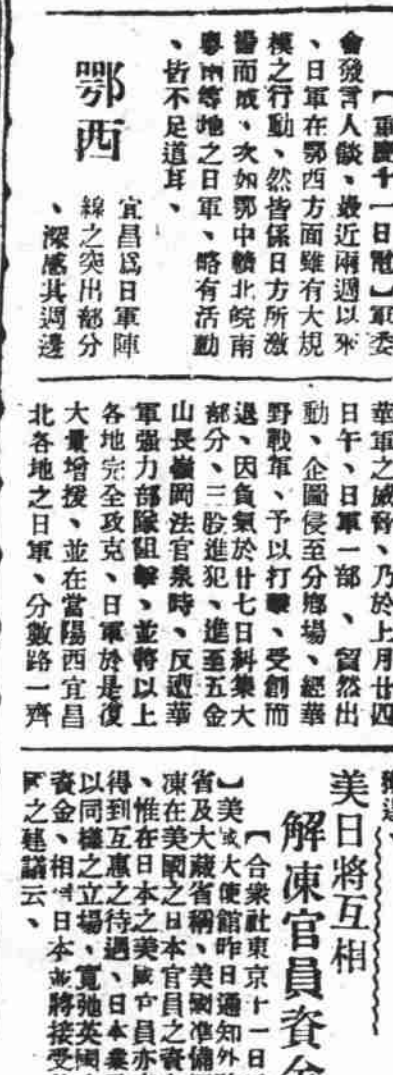 【重慶十一日電】軍委
會發言人談、最近兩週以來
、日軍在鄂西方面雖有大規
模之行動、然皆係日方所激
盪而成、次如鄂中贛北皖南
粵南等地之日軍、略有活動
、皆不足道耳、
鄂西
宜昌爲日軍陣
線之突出部分
、深感其週邊
華軍之威脅、乃於上月廿四
日午、日軍一部、貿然出
動、企圖侵至分鄉場、經華
野戰軍、予以打擊、受創而
退、因負氣於廿七日糾集大
部分、三股進犯、進至五金
山長嶺岡法官泉時、反遭華
軍强力部隊阻擊、並將以上
各地完全攻克、日軍於是復
大量增援、並在當陽西宜昌
北各地之日軍、分數路一齊
美日將互相
解凍官員資金
【合衆社東京十一日
】美國大使館昨日通知外務
省及大藏省稱、美國準備
凍在美國之日本官員之資
、惟在日本之美國官員亦
得到互惠之待遇、日本業
以同樣之立場、寬弛英國
資金、相信日本並將接受
之建議云、